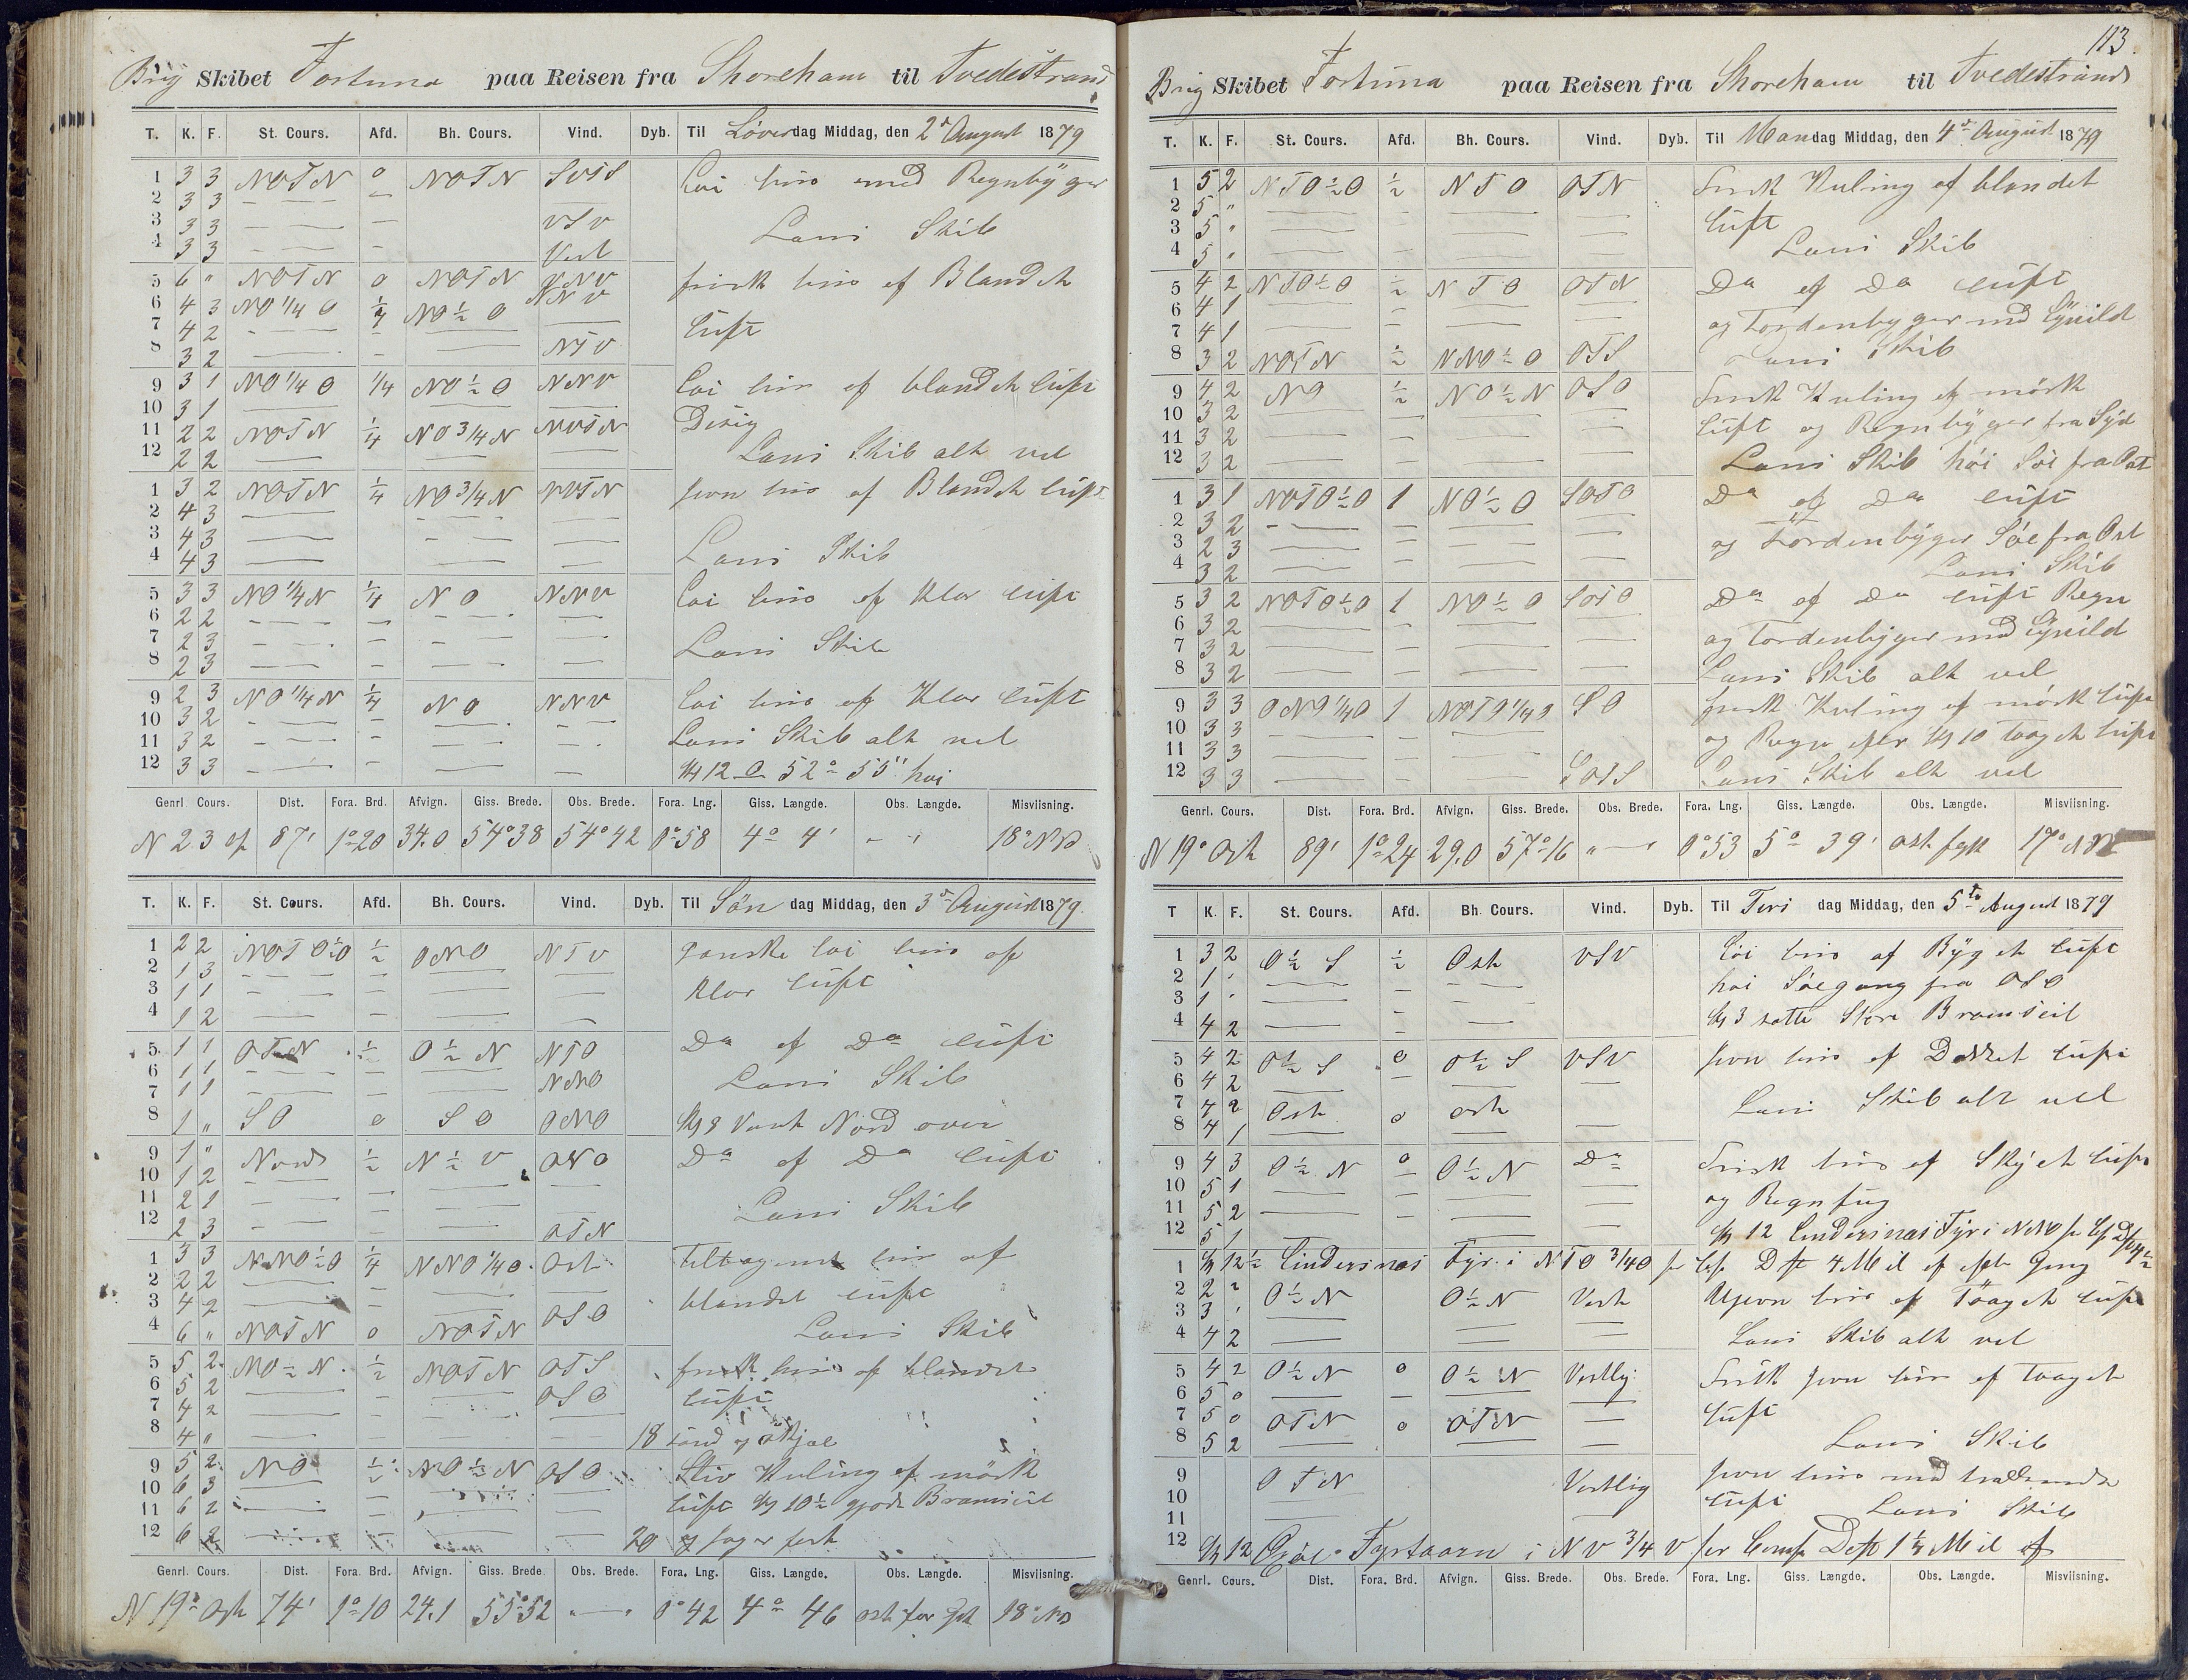 Brig Skibet Fortuna paa Reisen fra Shoreham til Tvedestrand
T. K. F. St. Cours. Afd. Bh. Cours. Vind. Dyb. Til Löverdag Middag, den 2d August 1879
1 3 3 NOTN 0 NOTN SVTS Loi bris med Regnbÿger
2 3 3
3 3 3 VSV Lens Skib
4 3 3 Vest
5 6 " NOTN 0 NOTN VNV frisk bris af Blandet
6 4 3 NO 1/4 O 1/4 NO 1/2 O NNV
7 4 2 luft
8 3 2 NTV
9 3 1 NO 1/4 O 1/4 NO 1/2 O NNV Loi bris af blandet luft
10 3 1 Disig
11 2 2 NOTN 1/4 NO 3/4 N NVTN
12 2 2 Lens Skib alt vel
1 3 2 NOTN 1/4 NO 3/4 N NVTN jevn bris af Blandet luft
2 4 3
3 4 3
4 4 3 Lens Skib
5 3 3 NO 1/4 N 1/4 NO NNV Loi bris af Klar luft
6 2 2
7 2 3 Lens Skib
8 2 3
9 2 3 NO 1/4 N 1/4 NO NNV Loi bris af Klar luft
10 3 2
11 3 2 Lens Skib alt vel
12 3 3 Kl 12 52° 55"
Genrl Cours. Dist. Fora. Brd. Afvign. Giss. Brede. Obs. Brede. Fora. Lng. Giss. Længde. Obs. Længde. Misviisning.
N 23 87' 1°20 34.0 54°38 54°42 0°58 4° 4' 18°
T. K. F. St. Cours. Afd. Bh. Cours. Vind. Dyb. Til Söndag Middag, den 3d August 1879
1 2 2 NOTO 1/2 O 1/2 ONO NTV ganske loi bris af
2 1 3
3 1 1 klar luft
4 1 2
5 1 1 OTN 1/2 O 1/2 N NTO Do af Do luft
6 1 1 NNO
7 1 1 Lens Skib
8 1 " SO 0 SO ONO Kl 8 Vendt Nord over
9 1 " Nord 1/2 N 1/2 V ONO Do af Do luft
10 1 2
11 2 1 Lens Skib
12 2 3 OTN
1 3 3 NNO 1/2 O 1/4 NNO 1/4 O Ost tiltagende bris af
2 2 2
3 4 2 OSO blandet luft
4 6 " NOTN 0 NOTN Lens Skib
5 5 2 NO 1/2 N 1/2 NOTN OTS frisk bris af blandet
6 5 2 OSO
7 4 2 luft
8 4 " 18 sand og skjæl
9 5 2 NO 1/2 NO 1/2 N OSO Stiv Kuling af mörk
10 6 3
11 6 2 luft Kl 10 1/2 gjorde Bramseil
12 6 2 20 og fast
Genrl. Cours. Dist. Fora. Brd. Afvign. Giss. Brede. Obs. Brede. Fora. Lng. Giss. Længde. Obs. Længde. Misviisning.
N 19° Ost 74' 1°10 24.1 55°52 0°42 4° 46 18°
113.
Brig Skibet Fortuna paa Reisen fra Shoreham til Tvedestrand
T. K. F. St. Cours. Afd. Bh. Cours. Vind. Dyb. Til Mandag Middag, den 4d August 1879
1 5 2 NTO 1/2 O 1/2 NTO OTN Frisk Kuling af blandet
2 5 "
3 5 " luft
4 5 " Lens Skib
5 4 2 NTO 1/2 O 1/2 NTO OTN Do af Do luft
6 4 1 og Tordenbyger med Lÿnild
7 4 1
8 3 2 NOTN 1/2 NNO 1/2 O OTS Lens Skib
9 4 2 NO 1/2 NO 1/2 N OSO Frisk Kuling af mörk
10 3 2 luft og Regnbÿger fra Sÿd
11 3 2
12 3 2 Lens Skib höi Söe fra Ost
1 3 1 NOTO 1/2 O 1 NO 1/2 O SOTO Do af Do luft
2 3 2
3 2 3 og Tordenbÿger Söe fra Ost
4 3 2 Lens Skib
5 3 2 NOTO 1/2 O 1 NO 1/2 O SOTO Do af Do luft Regn
6 3 2
7 3 2 og Tordenbÿger med Lÿnild
8 3 2 Lens Skib alt vel
9 3 3 ONO 1/4 O 1 NOTO 1/4 O SO frisk Kuling af mörk luft
10 3 3
11 3 3 og Regn efter Kl 10 Taaget luft
12 3 3 SOTS Lens Skib alt vel
Genrl. Cours. Dist. Fora. Brd. Afvign. Giss. Brede. Obs. Brede. Fora. Lng. Giss. Længde. Obs. Længde. Misviisning.
N 19° Ost 89' 1°24 29.0 57°16 0°53 5° 39' 17°
T K. F. St. Cours. Afd. Bh. Cours. Vind. Dyb. Til Tirsdag Middag, den 5te August 1879
1 3 2 O 1/2 S 1/2 Ost VSV Löi bris af Bÿget luft
2 1 " höi Söegang fra OSO
3 1 "
4 4 2 Kl 3 satte Store Bramseil
5 4 2 O 1/2 S 0 O 1/2 S VSV jevn bris af Dekket luft
6 4 2
7 4 2 Ost 0 ost Lens Skib alt vel
8 4 1
9 4 3 O 1/2 N 0 O 1/2 N Do Frisk bris af Skÿet luft
10 5 1
11 5 2 og Regnfug
12 5 1 Kl 12 Lindersnæs Fÿr i NNO
1 Kl 12 1/2 Lindersnæs Fÿr i NTO 3/4 O Dst 4 Mil af
2 2 2 O 1/2 N O 1/2 N Vest Ujevn bris af Taaget luft
3 3 "
4 4 2 Lens Skib alt vel
5 4 2 O 1/2 N 0 O 1/2 N Vestlig Frisk jevn bris af taaget
6 5 0
7 5 0 OTN 0 OTN luft
8 5 2 Lens Skib
9 OTN Vestlig jevn bris med
10 luft Lens Skib
11
12 Kl 12 Fyrtaarn i NV 3/4 V per Comp. Dst 1 1/4 Mil af
Genrl. Cours. Dist. Fora. Brd. Afvign. Giss. Brede. Obs. Brede. Fora. Lng. Giss. Længde. Obs. Længde. Misviisning.